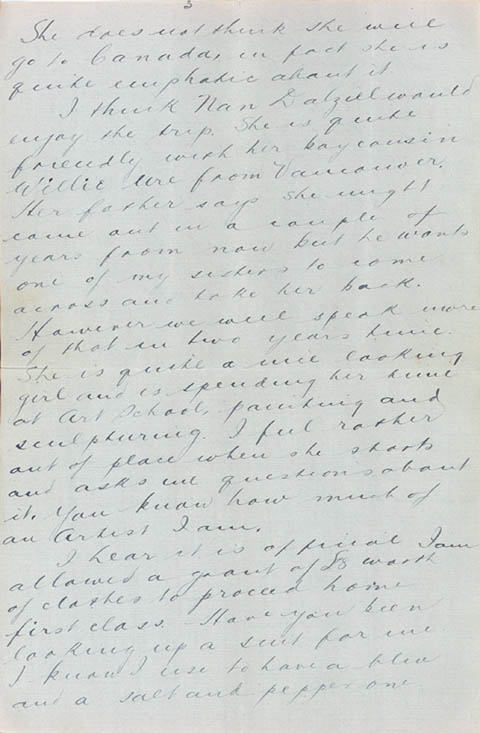 3
She does not think she will
go to Canada, in fact she is
quite emphatic about it
I think Nan Dalziel would
enjoy the trip. She is quite
friendly with her boy cousin
Willie Ure from Vancouver.
Her father says she might
come out in a couple of
years from now but he wants
one of my sisters to come
across and take her back.
However we will speak more
of that in two years time.
She is quite a nice looking
girl and is spending her time
at Art School, painting and
sculphuring. I feel rather
out of place when she starts
and asks me questions about
it. You know how much of
an Artist I am.
I hear it is official I am
allowed a grant of £8 worth
of clothes to proceed home
first class. Have you been
looking up a suit for me
I know I use to have a blue
and a salt and pepper one